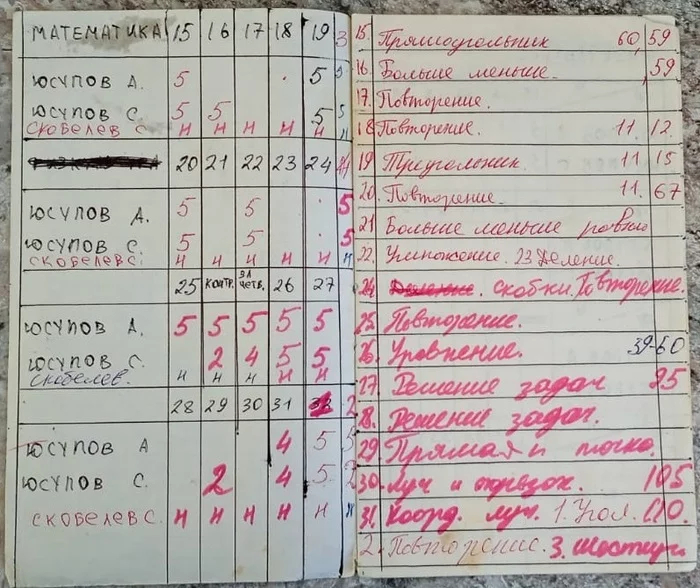 МАТЕМАТИКА 15 16 17 18 19 3
ЮСУПОВ А. 5 5 5
ЮСУПОВ С. 5 5 5 5
СКОБЕЛЕВ С. н н н н н н
20 21 22 23 24
ЮСУПОВ А. 5 5 5
ЮСУПОВ С. 5 5 5
СКОБЕЛЕВ С. н н н н н н
25 КОНТР. ЗА ЧЕТВ. 26 27
ЮСУПОВ А. 5 5 5 5 5
ЮСУПОВ С. 2 4 5 5
СКОБЕЛЕВ. н н н н н
28 29 30 31 2
ЮСУПОВ А 4 5 5
ЮСУПОВ С. 2 4 5 2
СКОБЕЛЕВ С. н н н н н н
15. Прямоугольник 60, 59
16. Больше меньше. , 59
17. Повторение.
18 Повторение. 11. 12.
19 Треугольник. 11 15
20. Повторение. 11. 67
21 Больше меньше равно
22. Умножение. 23 Деление.
24 Деление. скобки. Повторение.
25. Повторение.
26. Уровнение. 39-60
27. Решение задач 85
28. Решение задач.
29. Прямая и точка.
30. Луч и отрезок. 105
31. Коорд. луч. 1. Угол. 110.
2. Повторение. 3.